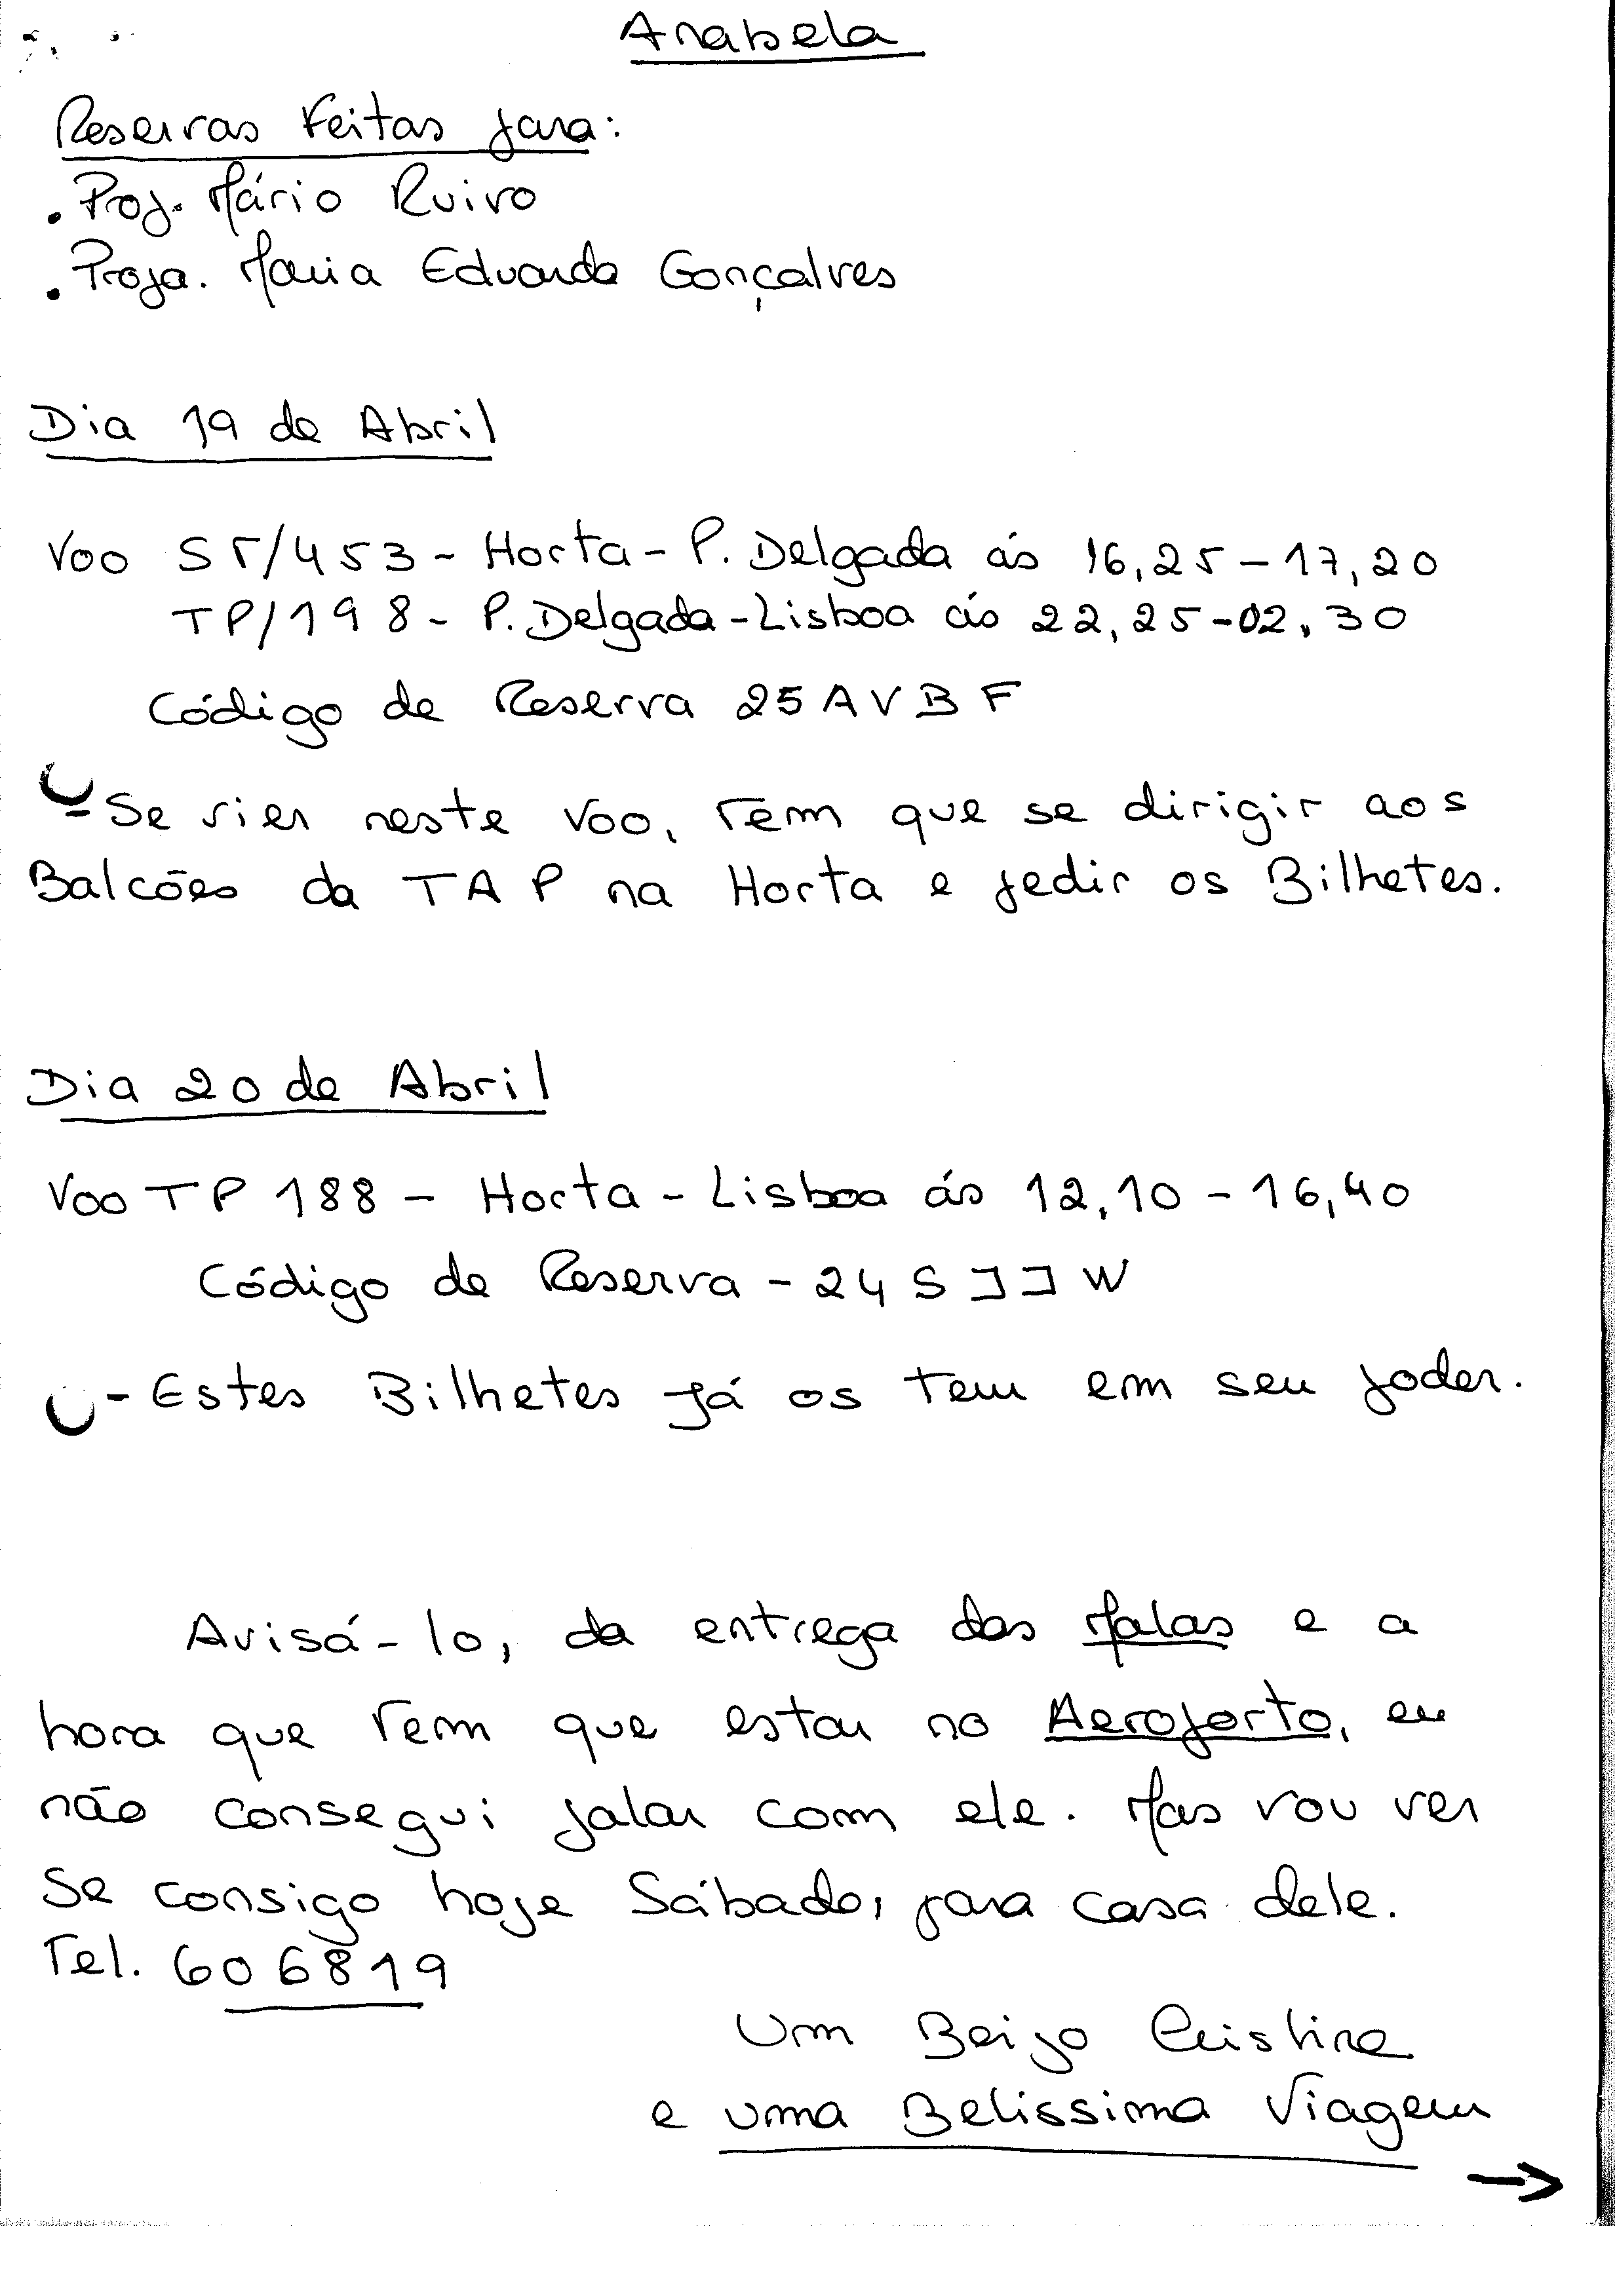 Anabela
Reservas Feitas para:
. Prof. Mário Ruivo
. Profa. Maria Eduarda Gonçalves
Dia 19 de Abril
Voo ST/453 - Horta - P. Delgada ás 16,25 - 17,20
TP/198 - P. Delgada - Lisboa ás 22,25 - 02,30
Código de Reserva 25AVBF
- Se vier neste Voo, Tem que se dirigir aos
Balcões da TAP na Horta e pedir os Bilhetes.
Dia 20 de Abril
Voo TP 188 - Horta - Lisboa ás 12,10 - 16,40
Código de Reserva - 24SJJW
- Estes Bilhetes já os tem em seu poder.
Avisá-lo, da entrega das Malas e a
hora que Tem que estar no Aeroporto, eu
não consegui falar com ele. Mas vou ver
se consigo hoje Sábado, para casa dele.
Tel. 606819
Um Beijo Cristina
e uma Belissima Viagem
→